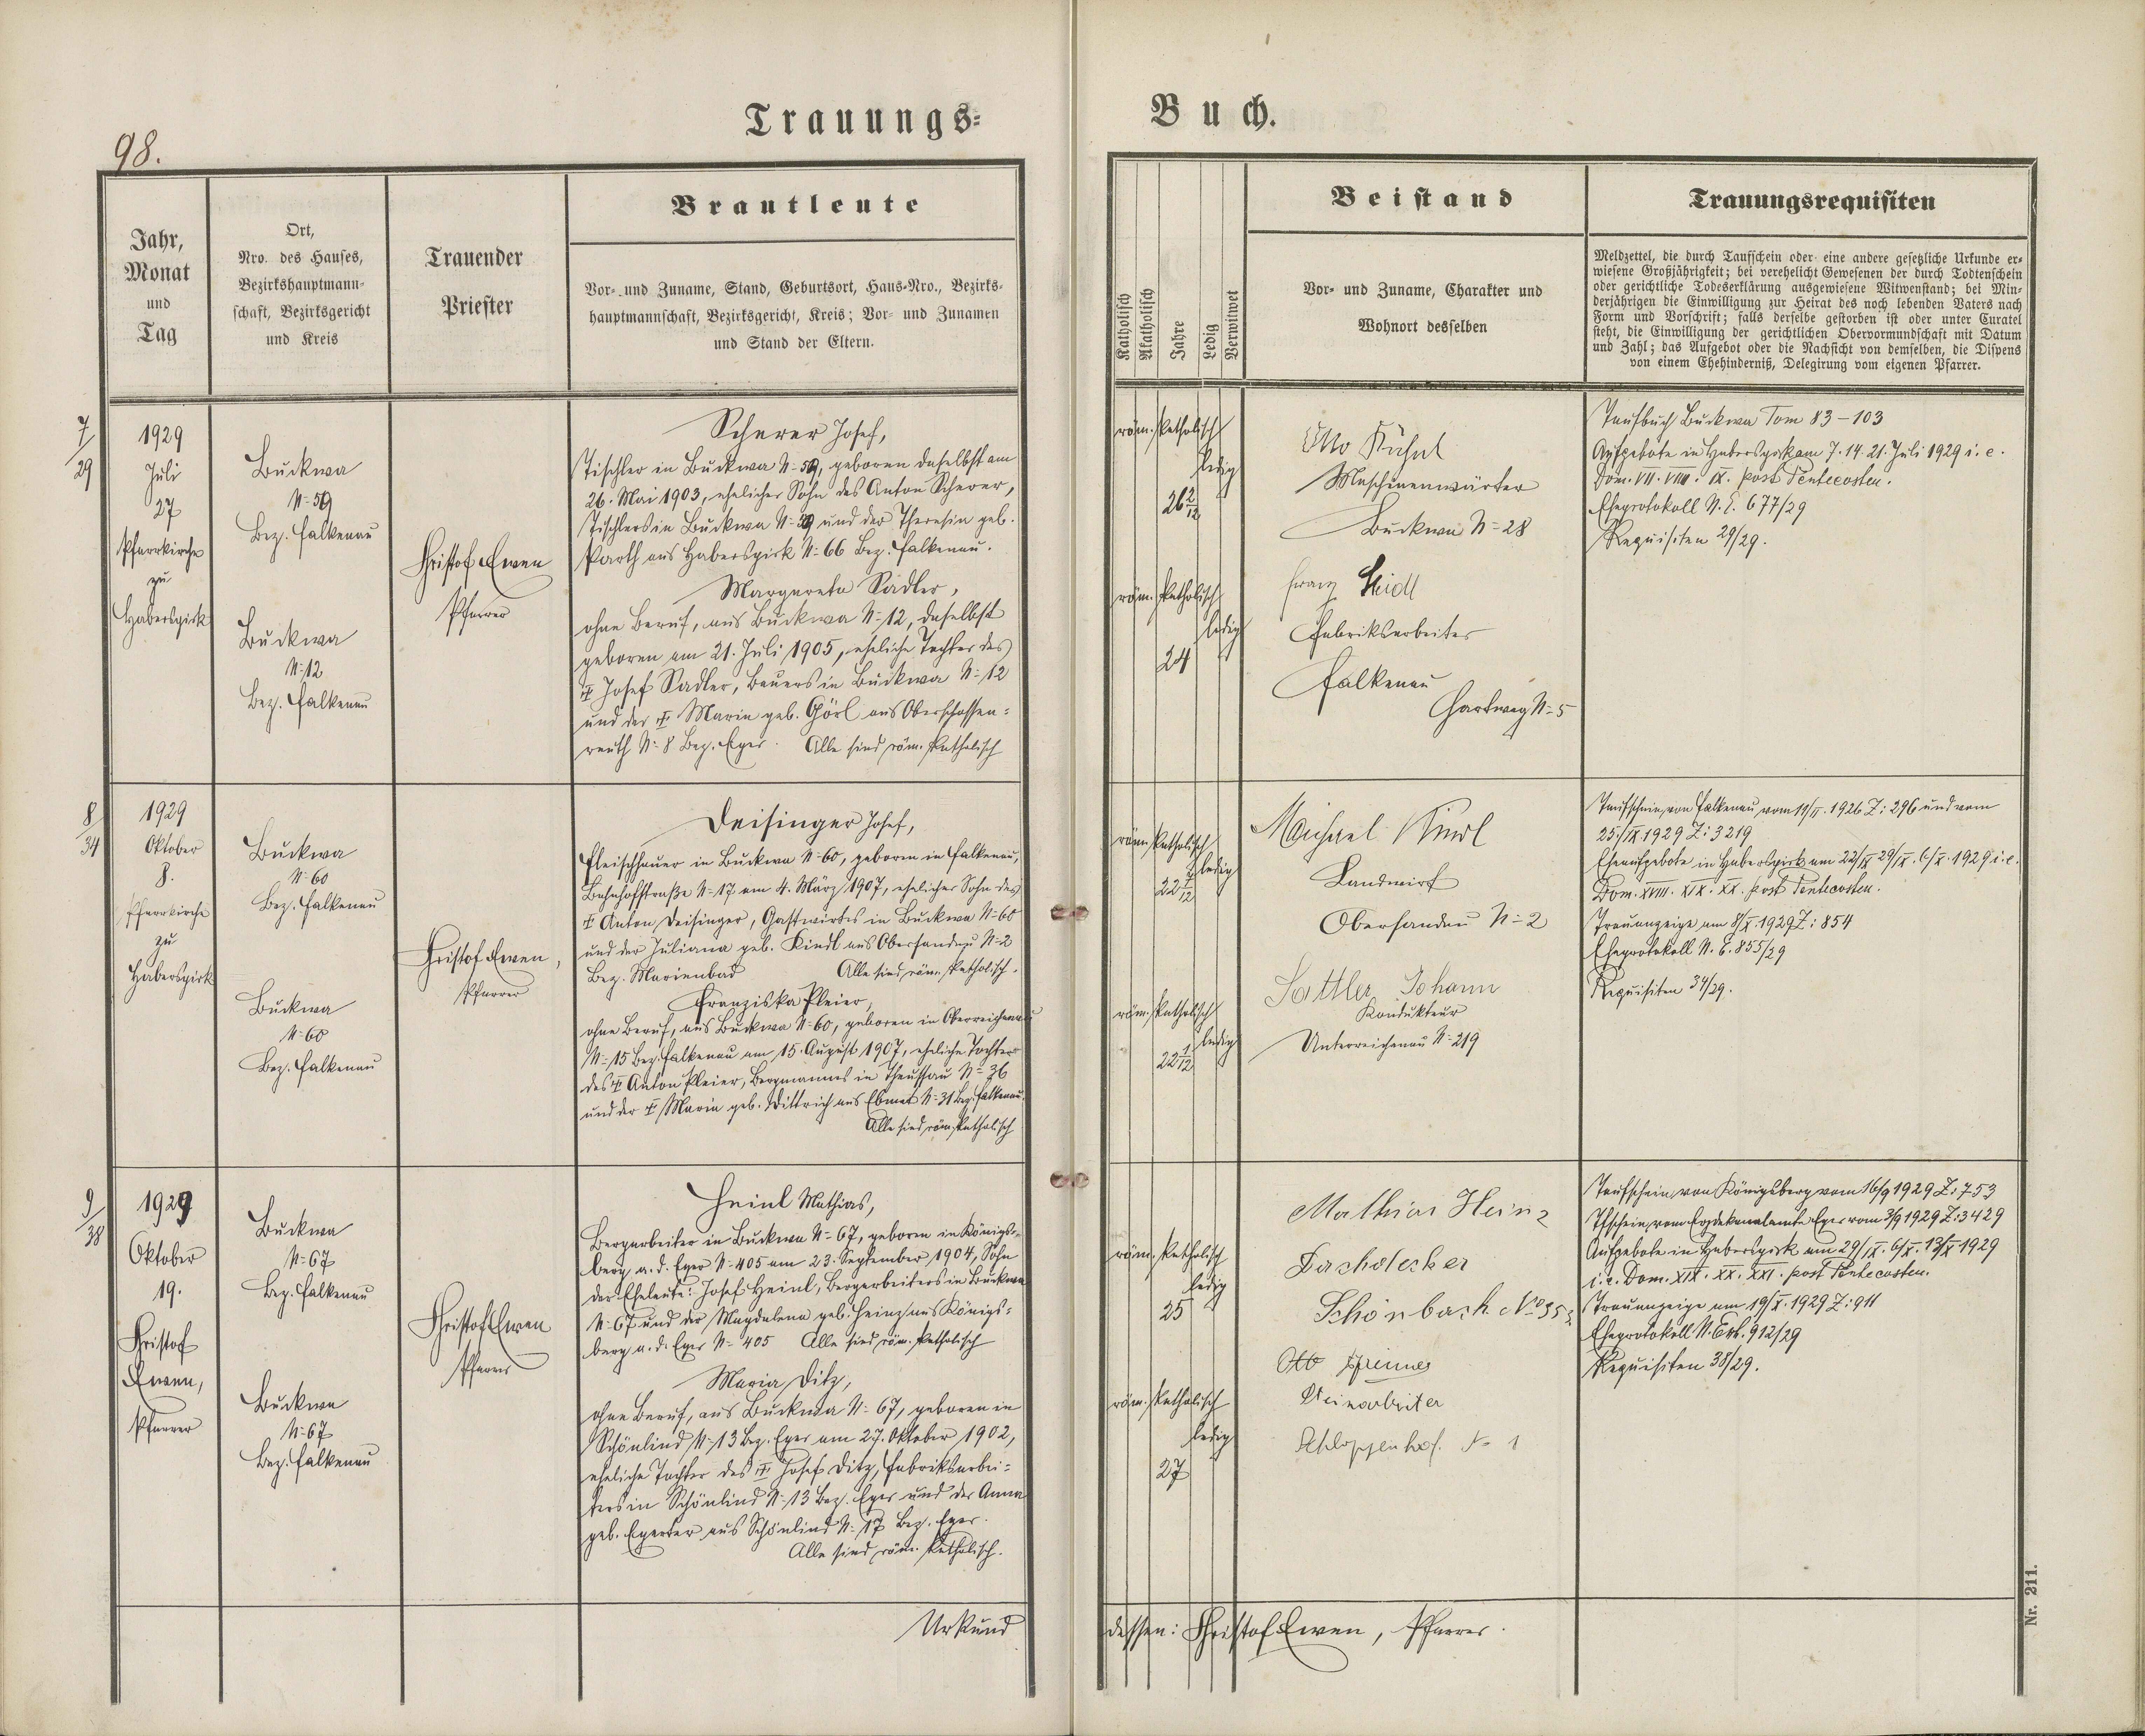 98.
Trauungs-
Buch.
Jahr,
Monat
und
Tag
Ort,
Nro. des Hauses,
Bezirkshauptmann-
schaft, Bezirksgericht
und Kreis
Trauender
Priester
Brautleute
Vor- und Zuname, Stand, Geburtsort, Haus-Nro., Bezirks-
hauptmannschaft, Bezirksgericht, Kreis; Vor- und Zunamen
und Stand der Eltern.
Katholisch
Akatholisch
Jahre
Ledig
Verwitwet
Beistand
Vor- und Zuname, Charakter und
Wohnort desselben
Trauungsrequisiten
Meldzettel, die durch Taufschein oder eine andere gesetzliche Urkunde er-
wiesene Großjährigkeit; bei verehelicht Gewesenen der durch Todtenschein
oder gerichtliche Todeserklärung ausgewiesene Witwenstand; bei Min-
derjährigen die Einwilligung zur Heirat des noch lebenden Vaters nach
Form und Vorschrift; falls derselbe gestorben ist oder unter Curatel
steht, die Einwilligung der gerichtlichen Obervormundschaft mit Datum
und Zahl; das Aufgebot oder die Nachsicht von demselben, die Dispens
von einem Ehehinderniß, Delegirung vom eigenen Pfarrer.
7/29
1929
Juli
27
Pfarrkirche
zu
Haberspirk
Buckwa
N=59
Bez. Falkenau
Buckwa
N=12
Bez. Falkenau
Christof Ewen
Pfarrer
Scherer Josef,
Tischler in Buckwa N=59, geboren daselbst am
26. Mai 1903, ehelicher Sohn des Anton Scherer,
Tischlers in Buckwa N=59 und der Theresia geb.
Parth aus Haberspirk N=66 Bez. Falkenau.
Margareta Sadler,
ohne Beruf, aus Buckwa N=12, daselbst
geboren am 21. Juli 1905, eheliche Tochter des
† Josef Sadler, Bauers in Buckwa N=12
und der † Maria geb. Görl aus Oberschossen-
reuth N=8 Bez. Eger. Alle sind röm. katholisch
röm. katholisch
ledig
26 2/12
röm. katholisch
ledig
24
Otto Kühnl
Maschinenwärter
Buckwa N=28
Franz Heidl
Fabriksarbeiter
Falkenau
Hartweg N=5
Taufbuch Buckwa Tom 83-103
Aufgebote in Haberspirk am 7. 14. 21. Juli 1929 i. e.
Dom. VII. VIII. IX. post Pentecosten.
Eheprotokoll N. E. 677/29
Requisiten 29/29.
8/34
1929
Oktober
8.
Pfarrkirche
zu
Haberspirk
Buckwa
N=60
Bez. Falkenau
Buckwa
N=60
Bez. Falkenau
Christof Ewen,
Pfarrer
Deisinger Josef,
Fleischhauer in Buckwa N=60, geboren in Falkenau,
Bahnhofstraße N=17 am 4. März 1907, ehelicher Sohn des
† Anton Deisinger, Gastwirtes in Buckwa N=60
und der Juliana geb. Kindl aus Obersandau N=2
Bez. Marienbad Alle sind röm. katholisch.
Franziska Pleier,
ohne Beruf, aus Buckwa N=60, geboren in Oberreichenau
N=15 Bez. Falkenau am 15. August 1907, eheliche Tochter
des † Anton Pleier, Bergmannes in Theussau N=36
und der † Maria geb. Dittrich aus Ebmet N=31 Bez. Falkenau.
Alle sind röm. katholisch
röm. katholisch
ledig
22 7/12
röm. katholisch
ledig
22 1/12
Michael Kindl
Landwirt
Obersandau N=2
Sattler Johann
Kondukteur
Unterreichenau N=219
Taufschein von Falkenau vom 11/II. 1926 Z: 296 und vom
25./IX. 1929 Z: 3219
Eheaufgebote in Haberspirk am 22/IX 29/IX. 6/X. 1929 i. e.
Dom. XVIII. XIX. XX. post Pentecosten.
Trauanzeige am 8/X. 1929 Z: 854
Eheprotokoll N. E. 855/29
Requisiten 34/29.
9/38
1929
Oktober
19.
Christof
Ewen,
Pfarrer
Buckwa
N=67
Bez. Falkenau
Buckwa
N=67
Bez. Falkenau
Christof Ewen
Pfarrer
Heinl Mathias,
Bergarbeiter in Buckwa N=67, geboren in Königs-
berg a. d. Eger N=405 am 23. September 1904, Sohn
der Eheleute: Josef Heinl, Bergarbeiters in Buckwa
N=67 und der Magdalena geb. Heinz aus Königs-
berg a. d. Eger N=405 Alle sind röm. katholisch
Maria Ditz,
ohne Beruf, aus Buckwa N=67, geboren in
Schönlind N=13 Bez. Eger am 27. Oktober 1902,
eheliche Tochter des † Josef Ditz, Fabriksarbei-
ters in Schönlind N=13 Bez. Eger und der Anna
geb. Egerter aus Schönlind N=17 Bez. Eger.
Alle sind röm. katholisch.
röm. katholisch
ledig
25
röm. katholisch
ledig
27
Mathias Heinz
Dachdecker
Schönbach No 35
Otto
Steinarbeiter
Schloppenhof. No 1
Taufschein von Königsberg vom 16/9 1929 Z: 753
Tfschein vom Erzdekanalamte Eger vom 3/9 1929 Z: 3429
Aufgebote in Haberspirk am 29/IX. 6/X. 13/X 1929
i. e. Dom. XIX. XX. XXI. post Pentecosten.
Trauanzeige am 19/X. 1929 Z: 911
Eheprotokoll N. Exh. 912/29
Requisiten 38/29.
Urkund
dessen: Christof Ewen, Pfarrer.
Nr. 211.